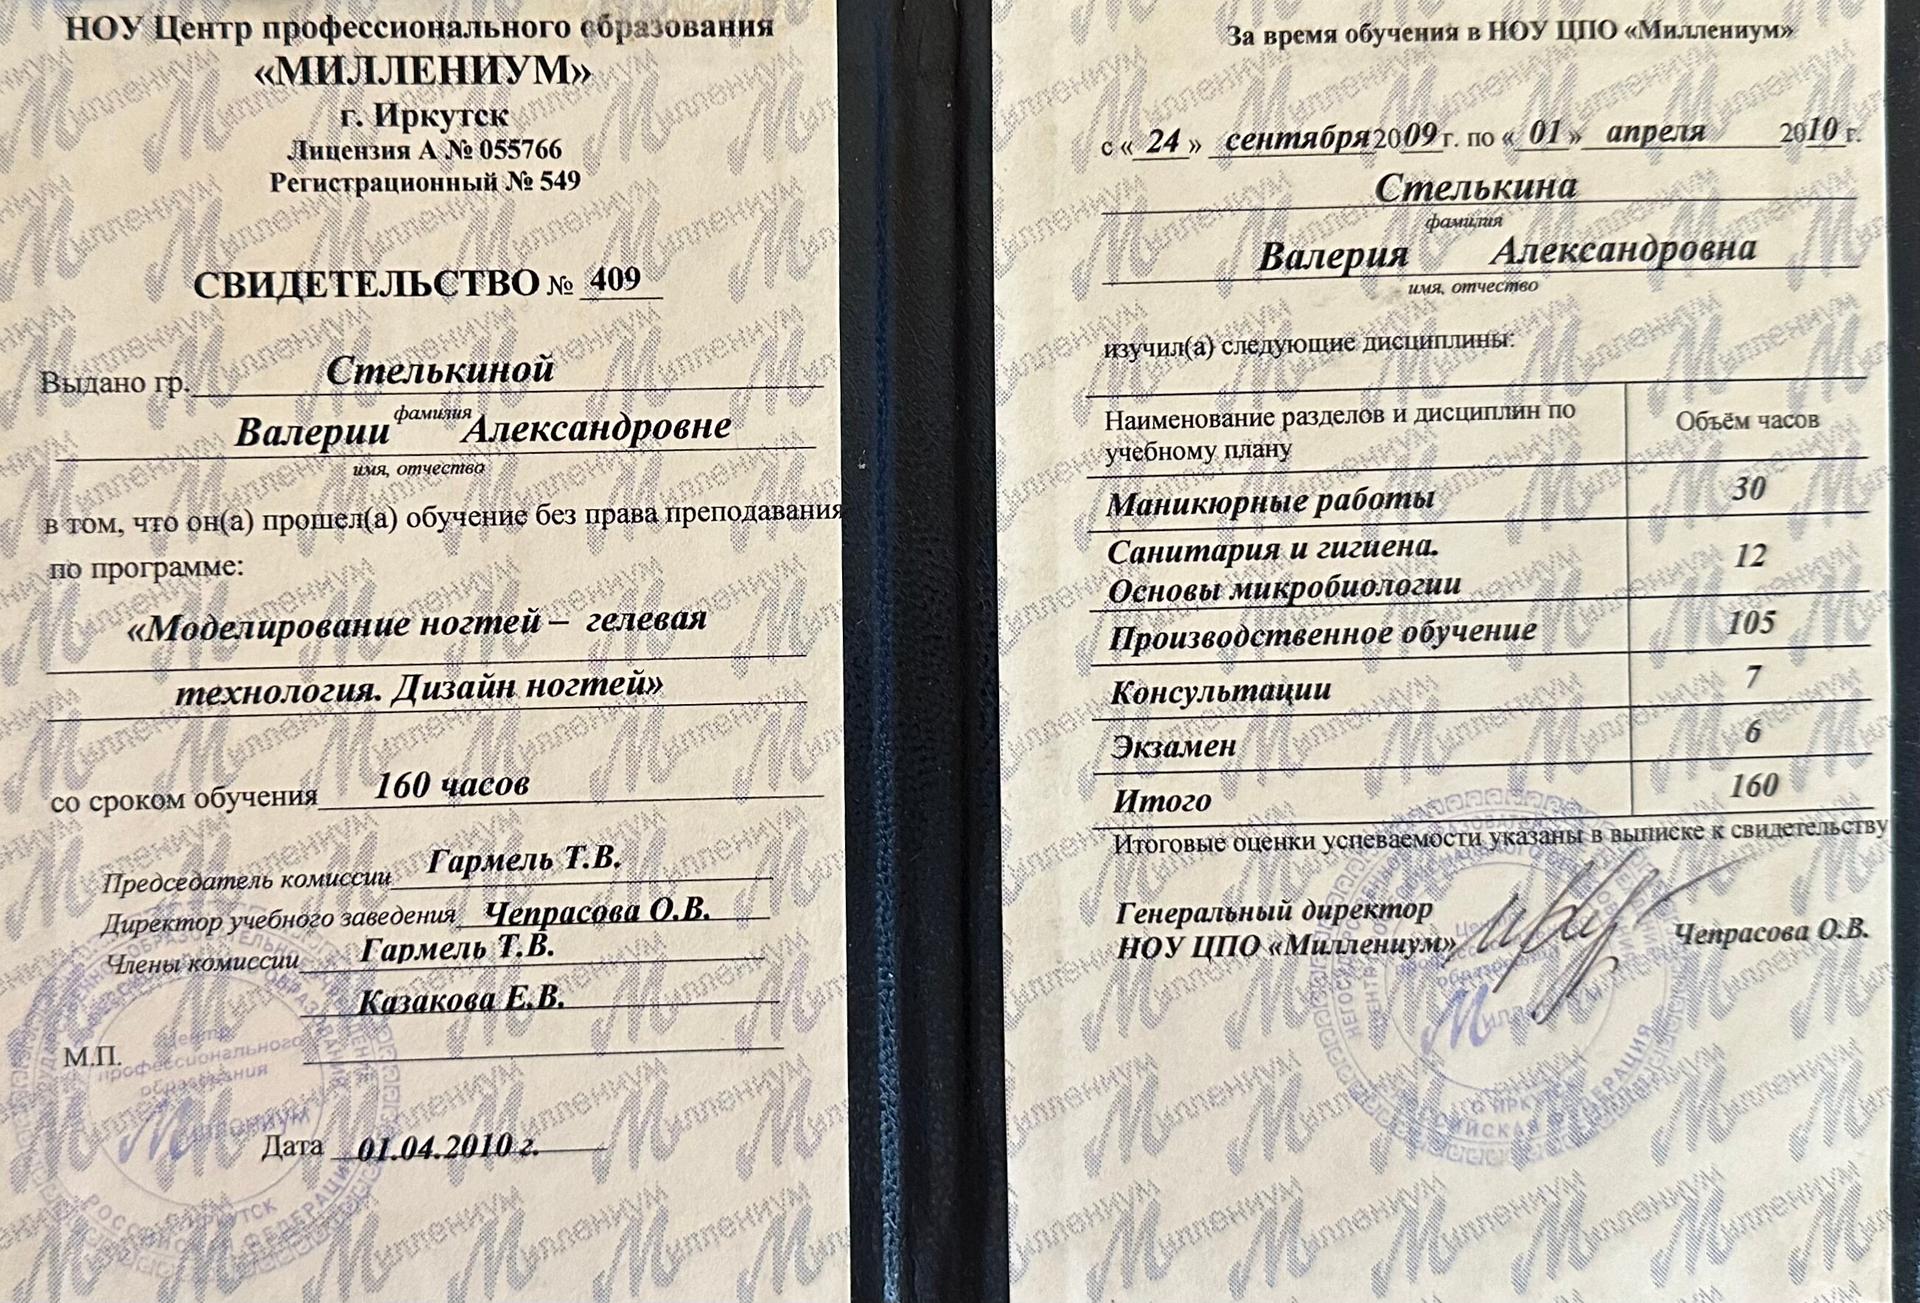 НОУ Центр профессионального образования
«МИЛЛЕНИУМ»
г. Иркутск
Лицензия А № 055766
Регистрационный № 549
СВИДЕТЕЛЬСТВО № 409
Выдано гр. Стелькиной
фамилия
Валерии Александровне
имя, отчество
в том, что он(а) прошел(а) обучение без права преподавания
по программе:
«Моделирование ногтей – гелевая
технология. Дизайн ногтей»
со сроком обучения 160 часов
Председатель комиссии Гармель Т.В.
Директор учебного заведения Чепрасова О.В.
Члены комиссии Гармель Т.В.
Казакова Е.В.
М.П.
Центр
профессионального
образования
Миллениум
Дата 01.04.2010 г.
За время обучения в НОУ ЦПО «Миллениум»
с « 24 » сентября 2009 г. по « 01 » апреля 2010 г.
Стелькина
фамилия
Валерия Александровна
имя, отчество
изучил(а) следующие дисциплины:
Наименование разделов и дисциплин по
учебному плану
Объём часов
Маникюрные работы 30
Санитария и гигиена.
Основы микробиологии 12
Производственное обучение 105
Консультации 7
Экзамен 6
Итого 160
Итоговые оценки успеваемости указаны в выписке к свидетельству
Генеральный директор
НОУ ЦПО «Миллениум» Чепрасова О.В.
Миллениум